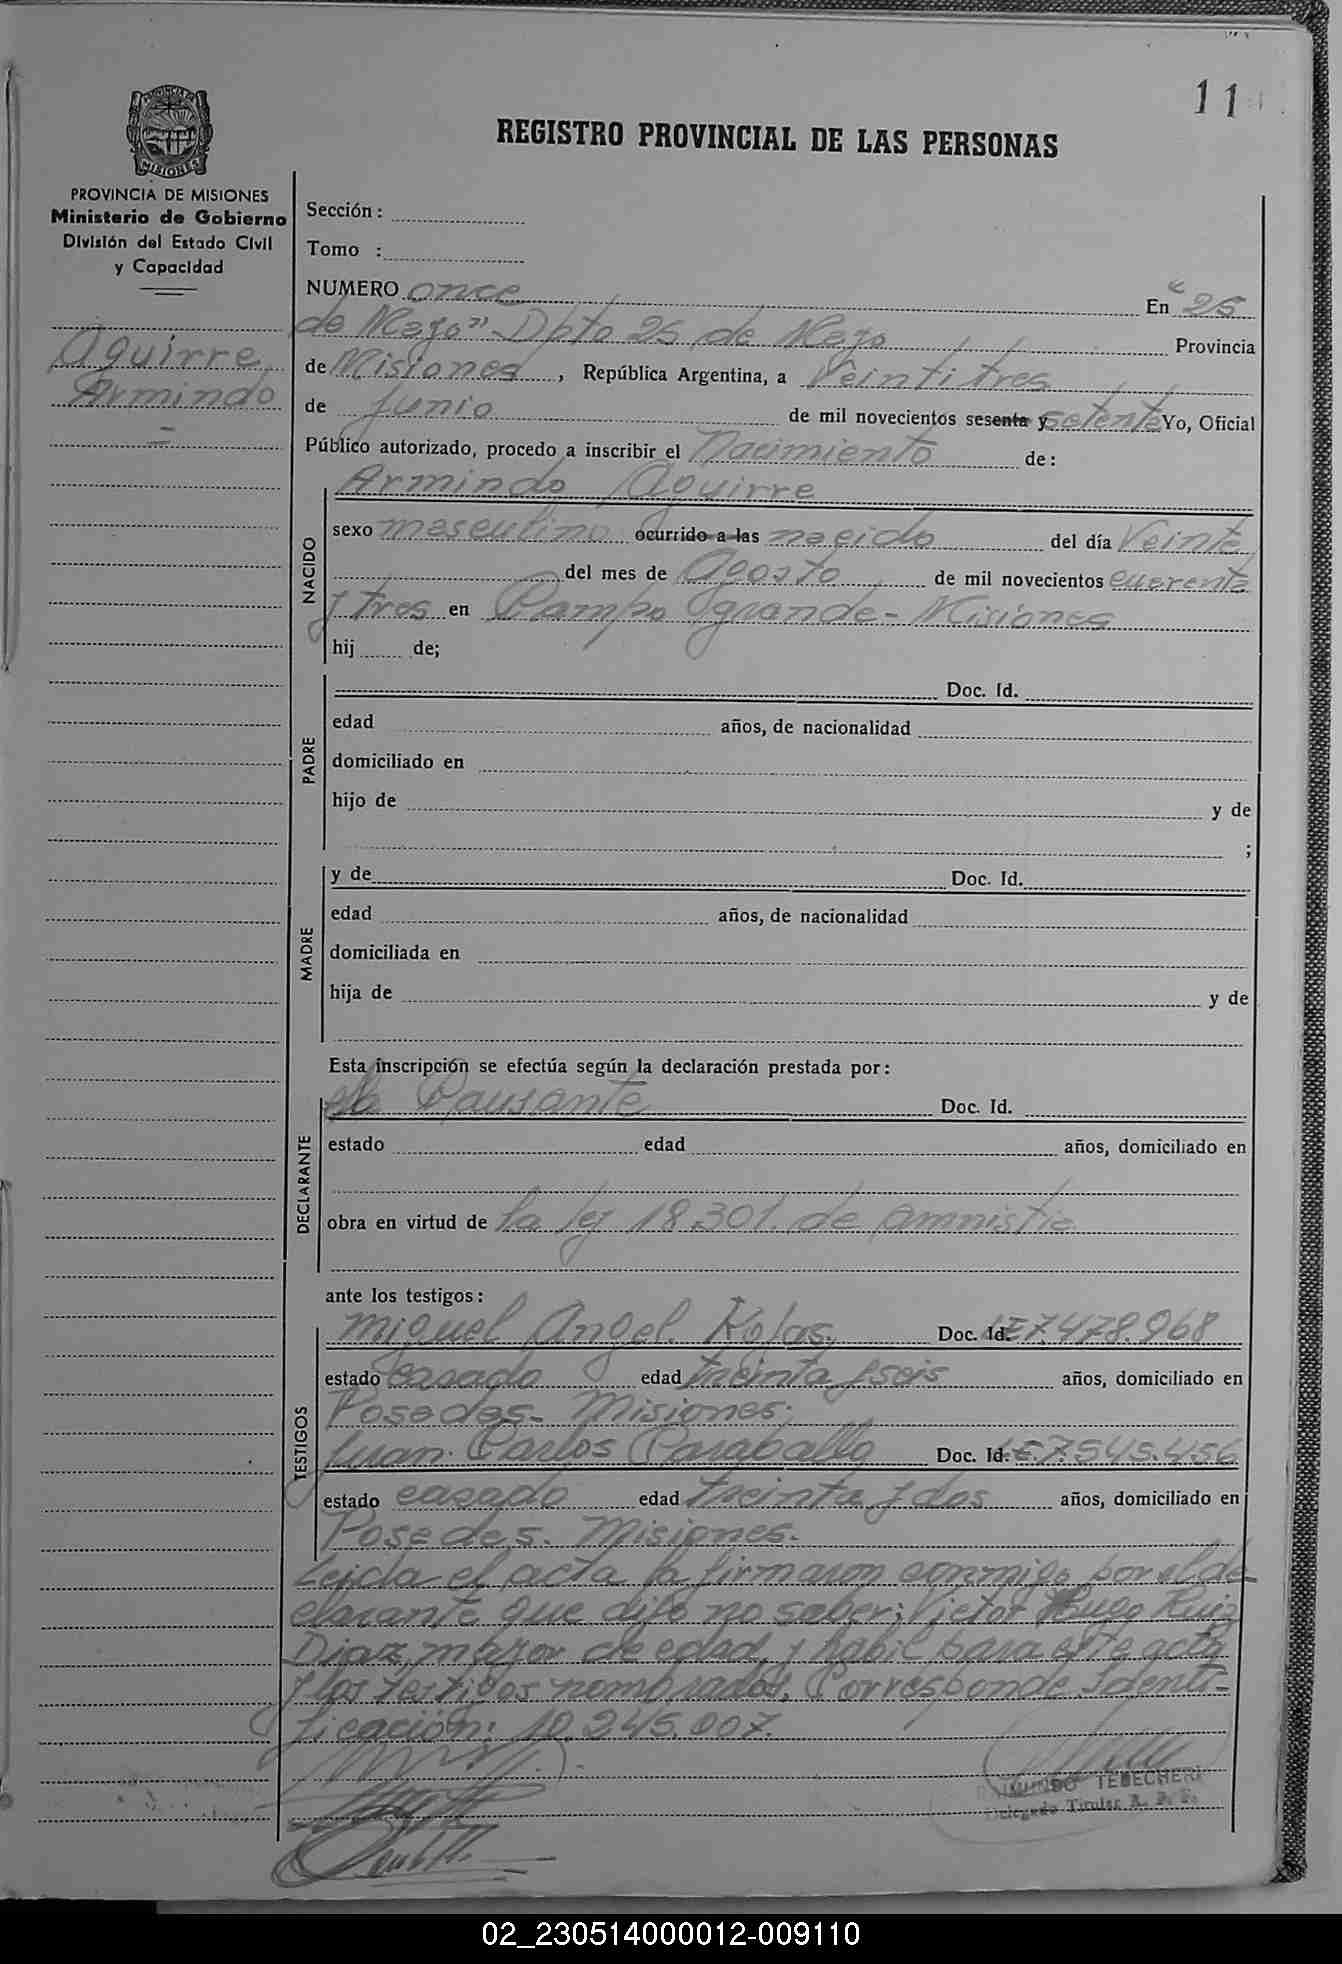 11
REGISTRO PROVINCIAL DE LAS PERSONAS
PROVINCIA DE MISIONES
PROVINCIA DE MISIONES
Ministerio de Gobierno
División del Estado Civil
y Capacidad
Aguirre
Armindo
Sección:
Tomo :
NUMERO once En "25
de Mayo" - Dpto 25 de Mayo Provincia
de Misiones, República Argentina, a Veintitres
de Junio de mil novecientos sesenta y setenta Yo, Oficial
Público autorizado, procedo a inscribir el Nacimiento de:
NACIDO
Armindo Aguirre
sexo masculino ocurrido a las nacido del día Veinte
del mes de Agosto de mil novecientos cuarenta
y tres en Campo grande - Misiones
hij de;
PADRE
Doc. Id.
edad años, de nacionalidad
domiciliado en
hijo de y de
;
MADRE
y de Doc. Id.
edad años, de nacionalidad
domiciliada en
hija de y de
Esta inscripción se efectúa según la declaración prestada por:
DECLARANTE
Causante Doc. Id.
estado edad años, domiciliado en
obra en virtud de la ley 18.301. de amnistia
ante los testigos:
TESTIGOS
Miguel Angel Rojas, Doc. Id. LE 7.478.968
estado casado edad treinta y seis años, domiciliado en
Posadas - Misiones;
Juan Carlos Caraballo Doc. Id. LE 7.545.456
estado casado edad treinta y dos años, domiciliado en
Posadas. Misiones.-
Leida el acta la firmaron conmigo por el de-
clarante que dijo no saber; Victor Hugo Ruiz
Diaz, mayor de edad, y habil para este acto
y los testigos nombrados. Corresponde Identi-
ficación: 10.245.007.
RAIMUNDO TEBECHERI
Delegado Titular R. P. P.
02_230514000012-009110